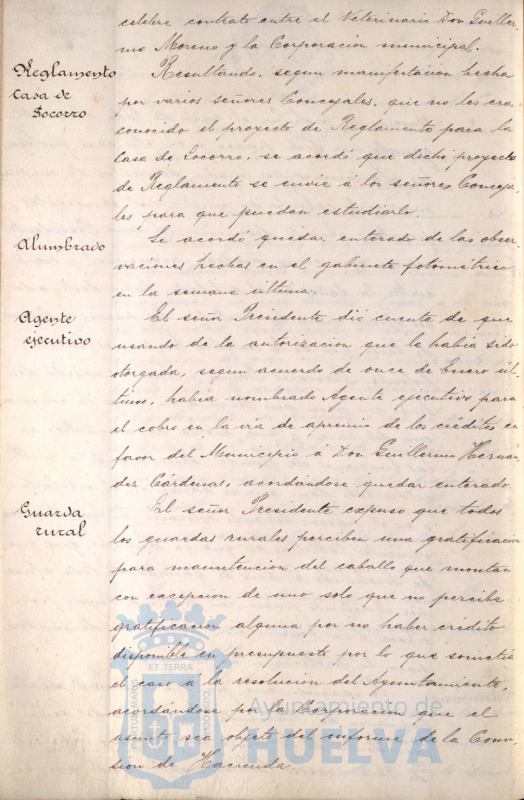 celebre contrato entre el Veterinario Don Guiller-
mo Moreno y la Corporacion municipal.
Reglamento
Casa de
Socorro
Resultando, segun manifestacion hecha
por varios señores Concejales, que no les era
conocido el proyecto de Reglamento para la
Casa de Socorro, se acordó que dicho proyecto
de Reglamento se envie á los señores Conceja-
les para que puedan estudiarlo.
Alumbrado
Se acordó quedar enterado de las obser-
vaciones hechas en el gabinete fotométrico
en la semana última.
Agente
ejecutivo
El señor Presidente dió cuenta de que
usando de la autorizacion que le habia sido
otorgada, segun acuerdo de once de Enero úl-
timo, habia nombrado Agente ejecutivo para
el cobro en la vía de apremio de los créditos en
favor del Municipio á Don Guillermo Hernan-
dez Cárdenas, acordándose quedar enterado.
Guarda
rural
El señor Presidente expuso que todos
los guardas rurales perciben una gratificacion
para manutencion del caballo que montan
con excepcion de uno solo que no percibe
gratificacion alguna por no haber crédito
disponible en presupuesto por lo que sometía
el caso a la resolucion del Ayuntamiento,
acordándose por la Corporacion que el
asunto sea objeto del informe de la Comi-
sion de Hacienda.
ET TERRÆ
PORTUS MARIS
CUSTODIA
Ayuntamiento de
HUELVA